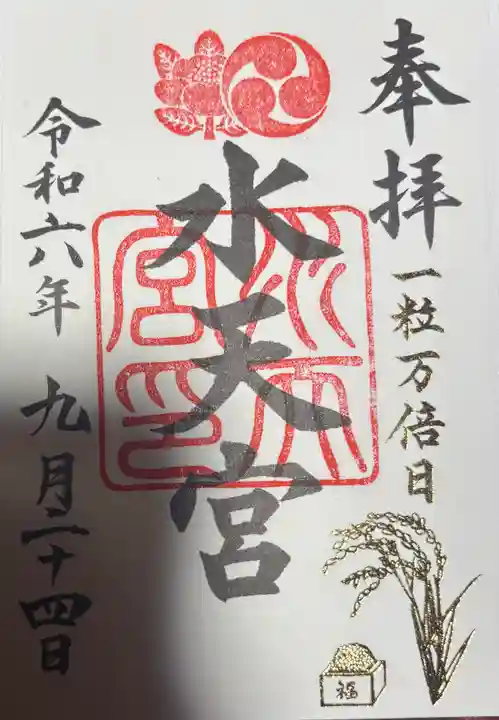 奉拝
一粒万倍日
水天宮
水天宮印
令和六年 九月二十四日
福